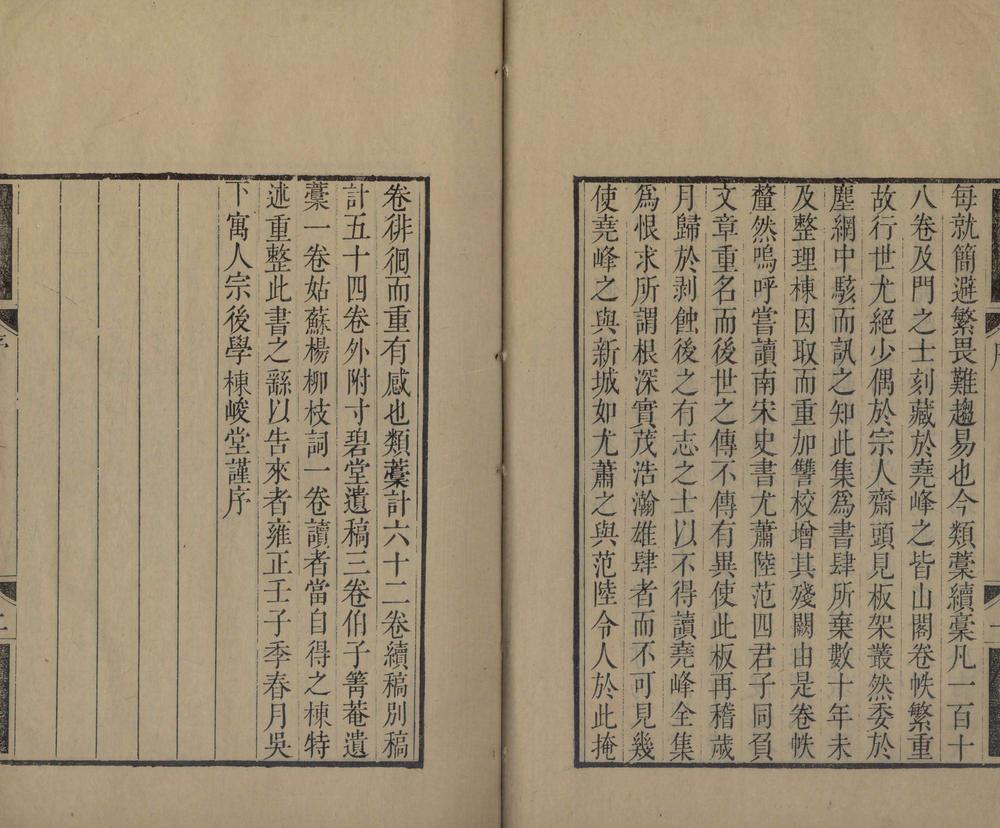 每就簡避繁畏難趨易也今類藁續藁凡一百十
八卷及門之士刻藏於堯峰之皆山閣卷帙繁重
故行世尤絕少偶於宗人齋頭見板架叢然委於
塵網中駭而訊之知此集爲書肆所棄數十年未
及整理棟因取而重加讐校增其殘闕由是卷帙
釐然嗚呼嘗讀南宋史書尤蕭陸范四君子同負
文章重名而後世之傳不傳有異使此板再稽歲
月歸於剥蝕後之有志之士以不得讀堯峰全集
爲恨求所謂根深實茂浩瀚雄肆者而不可見幾
使堯峰之與新城如尤蕭之與范陸令人於此掩
卷徘徊而重有感也類藁計六十二卷續稿別稿
計五十四卷外附寸碧堂遺稿三卷伯子箐菴遺
藁一卷姑蘇楊柳枝詞一卷讀者當自得之棟特
述重整此書之繇以告來者雍正壬子季春月吳
下寓人宗後學棟峻堂謹序